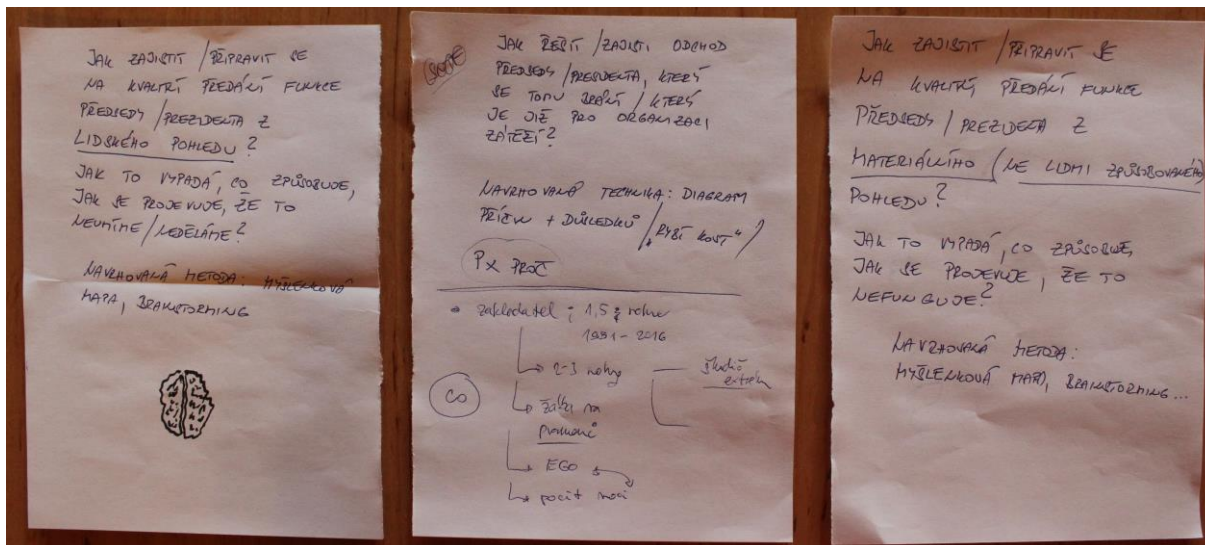 JAK ZAJISTIT / PŘIPRAVIT SE
NA KVALITNÍ PŘEDÁNÍ FUNKCE
PŘEDSEDY / PREZIDENTA Z
LIDSKÉHO POHLEDU?
JAK TO VYPADÁ, CO ZPŮSOBUJE,
JAK SE PROJEVUJE, ŽE TO
NEUMÍME / NEDĚLÁME?
NAVRHOVANÁ METODA: MYŠLENKOVÁ
MAPA, BRAINSTORMING
JAK ŘEŠIT / ZAJISTI ODCHOD
PŘEDSEDY / PRESIDENTA, KTERÝ
SE TOMU BRÁNÍ / KTERÝ
JE JIŽ PRO ORGANIZACI
ZÁTĚŽÍ?
NAVRHOVANÁ TECHNIKA: DIAGRAM
PŘÍČIN + DŮSLEDKŮ / "RYBÍ KOST" /
Px PROČ
zakladatel ; 1,5 rokem
1991 - 2016
2-3 nohy
CO
na
EGO
pocit moci
JAK ZAJISTIT / PŘIPRAVIT SE
NA KVALITNÍ PŘEDÁNÍ FUNKCE
PŘEDSEDY / PREZIDENTA Z
MATERIÁLNÍHO (NE LIDMI ZPŮSOBOVANÉHO)
POHLEDU?
JAK TO VYPADÁ, CO ZPŮSOBUJE,
JAK SE PROJEVUJE, ŽE TO
NEFUNGUJE?
NAVRHOVANÁ METODA:
MYŠLENKOVÁ MAPA, BRAINSTORMING...